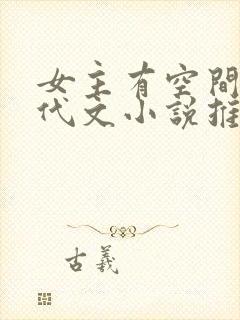 女主有空間
代文小說推
古羲